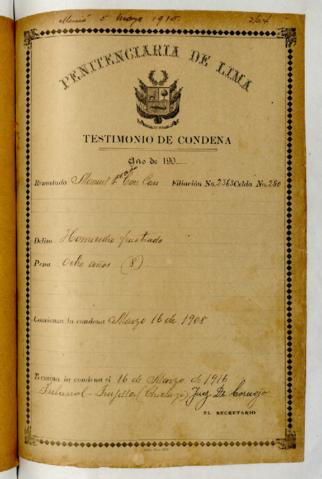 Murió 5 Mayo 1910.
264
PENITENCIARIA DE LIMA
TESTIMONIO DE CONDENA
Año de 190
Rematado Manuel Con Can Filiación No. 2363 Celda No. 280
Delito Homicidio frustrado
Pena Ocho años (8)
Comienza la condena Marzo 16 de 1908
Termina la condena el 16 de Marzo de 1916
Tribunal - Trujillo (Chiclayo) Juez De Cornejo
EL SECRETARIO